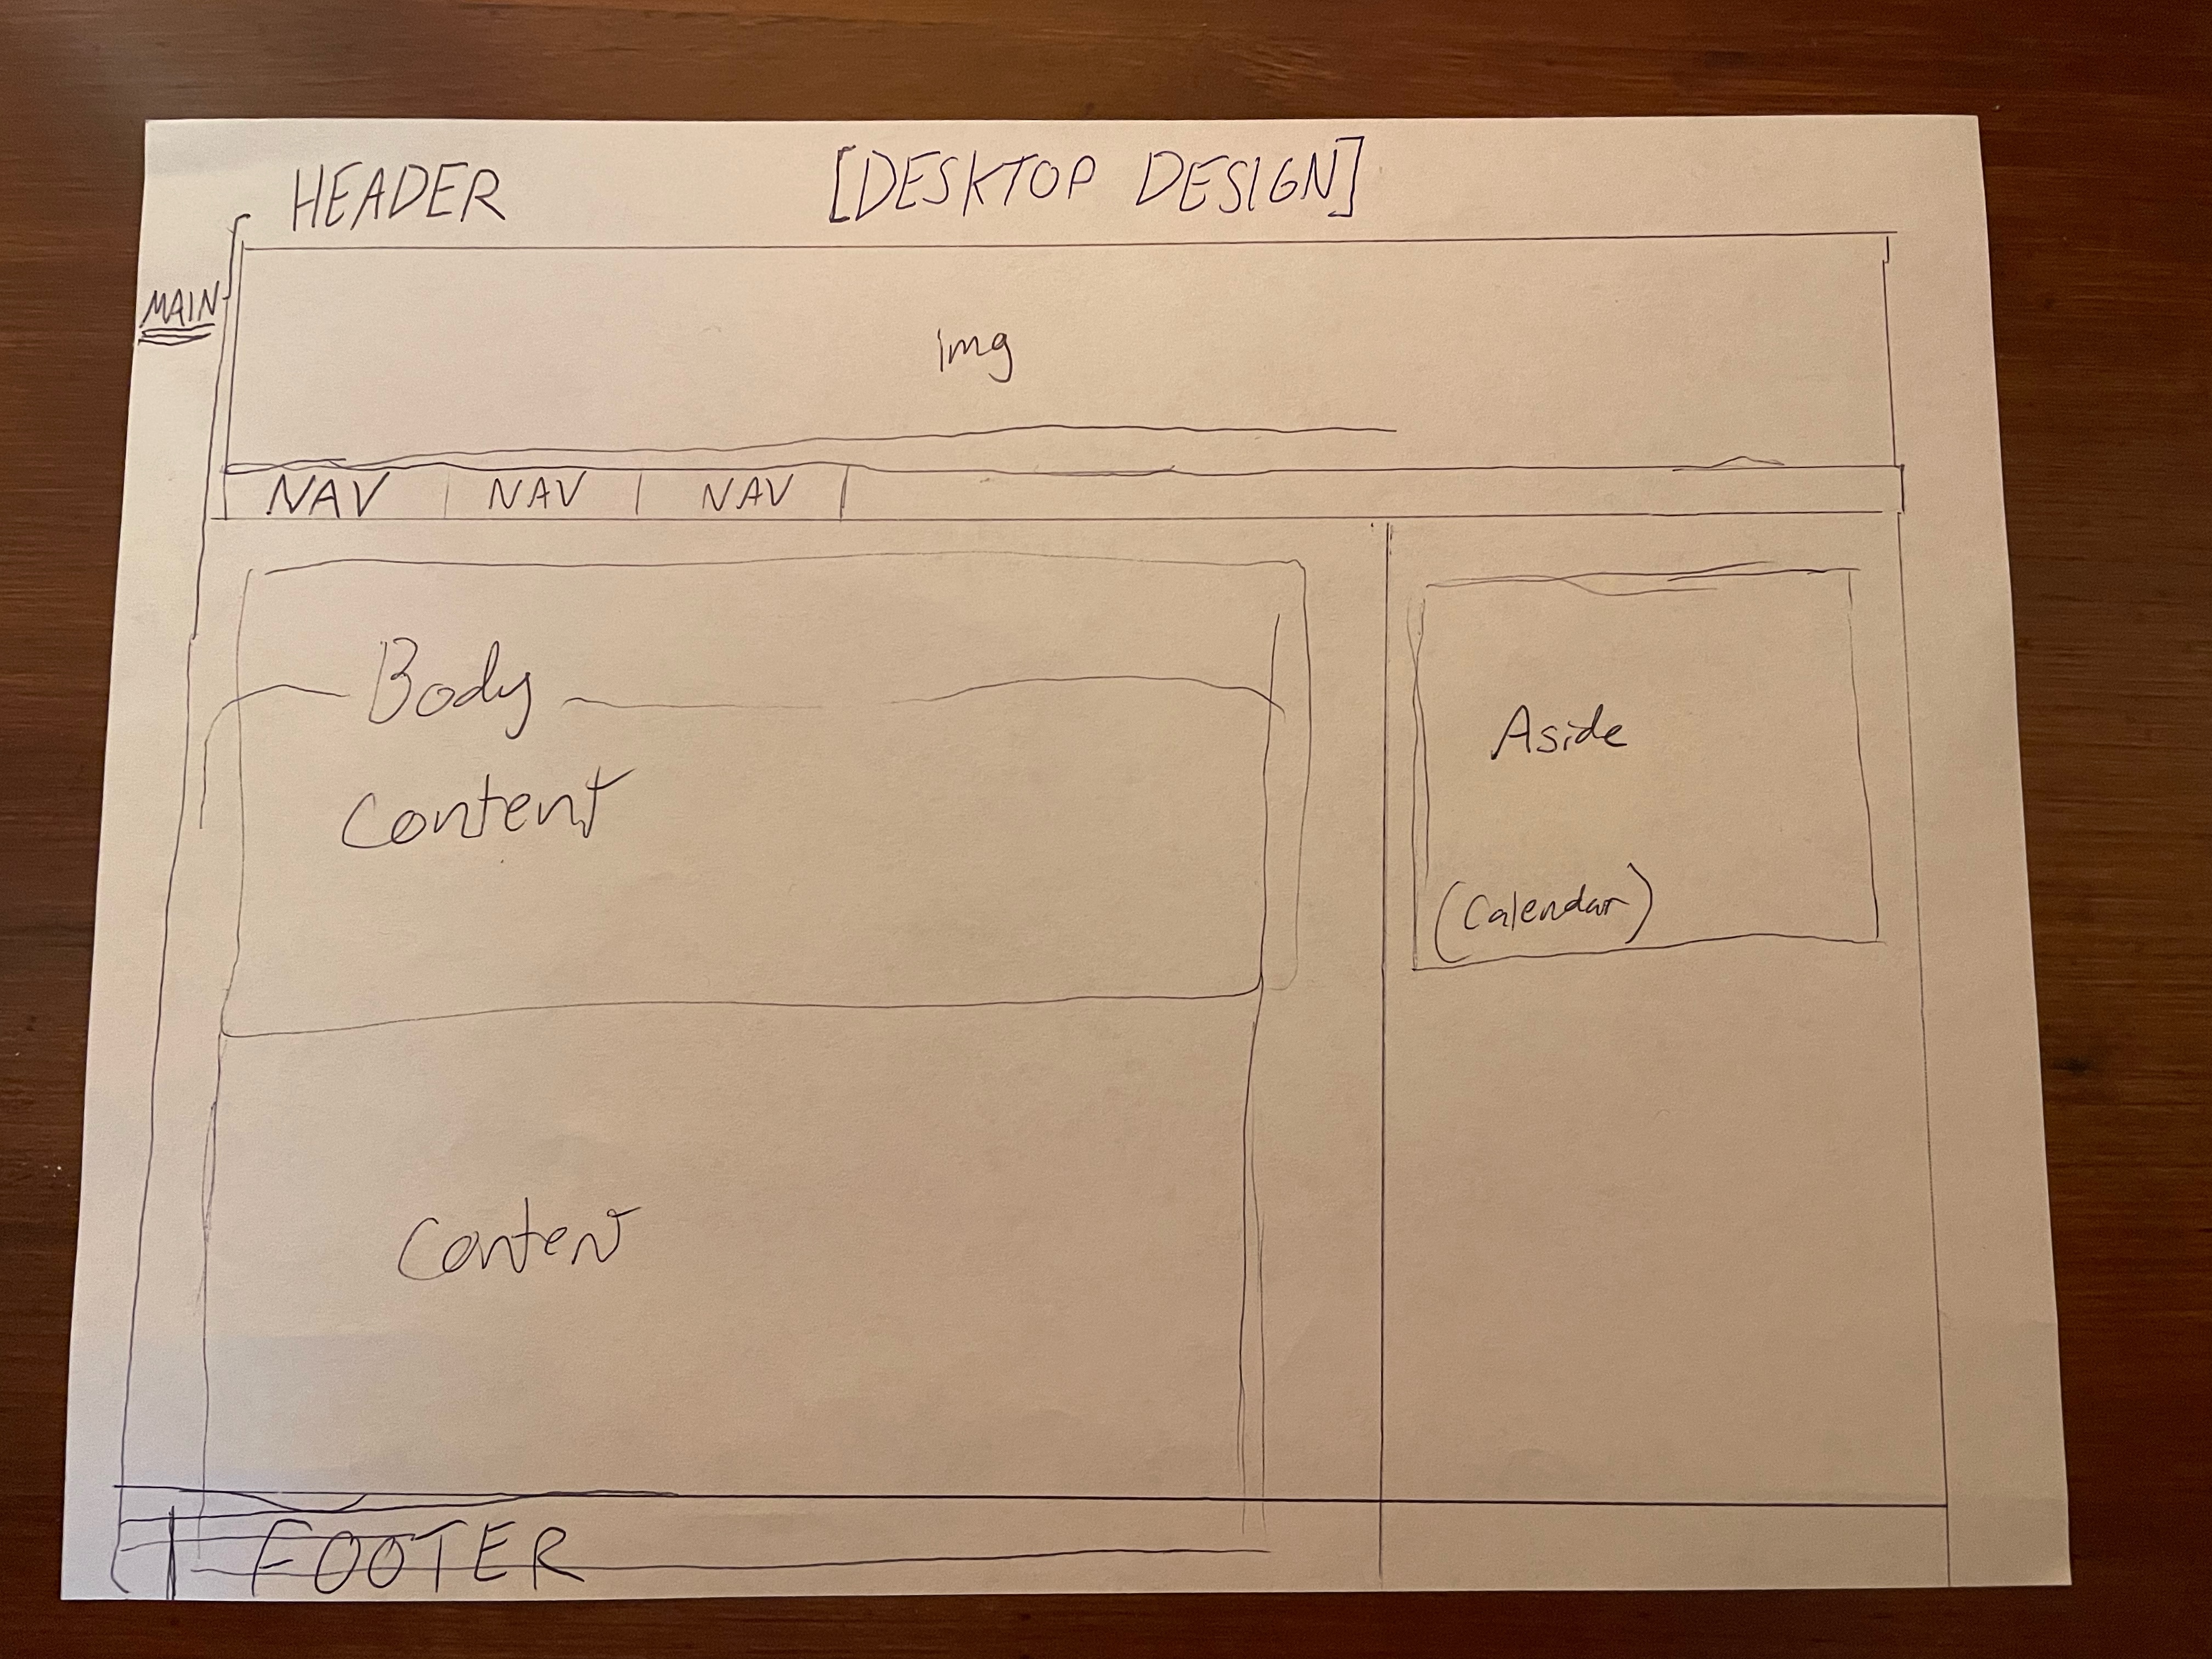 HEADER [DESKTOP DESIGN]
MAIN
img
NAV NAV NAV
Body
Content
Aside
(Calendar)
Content
FOOTER